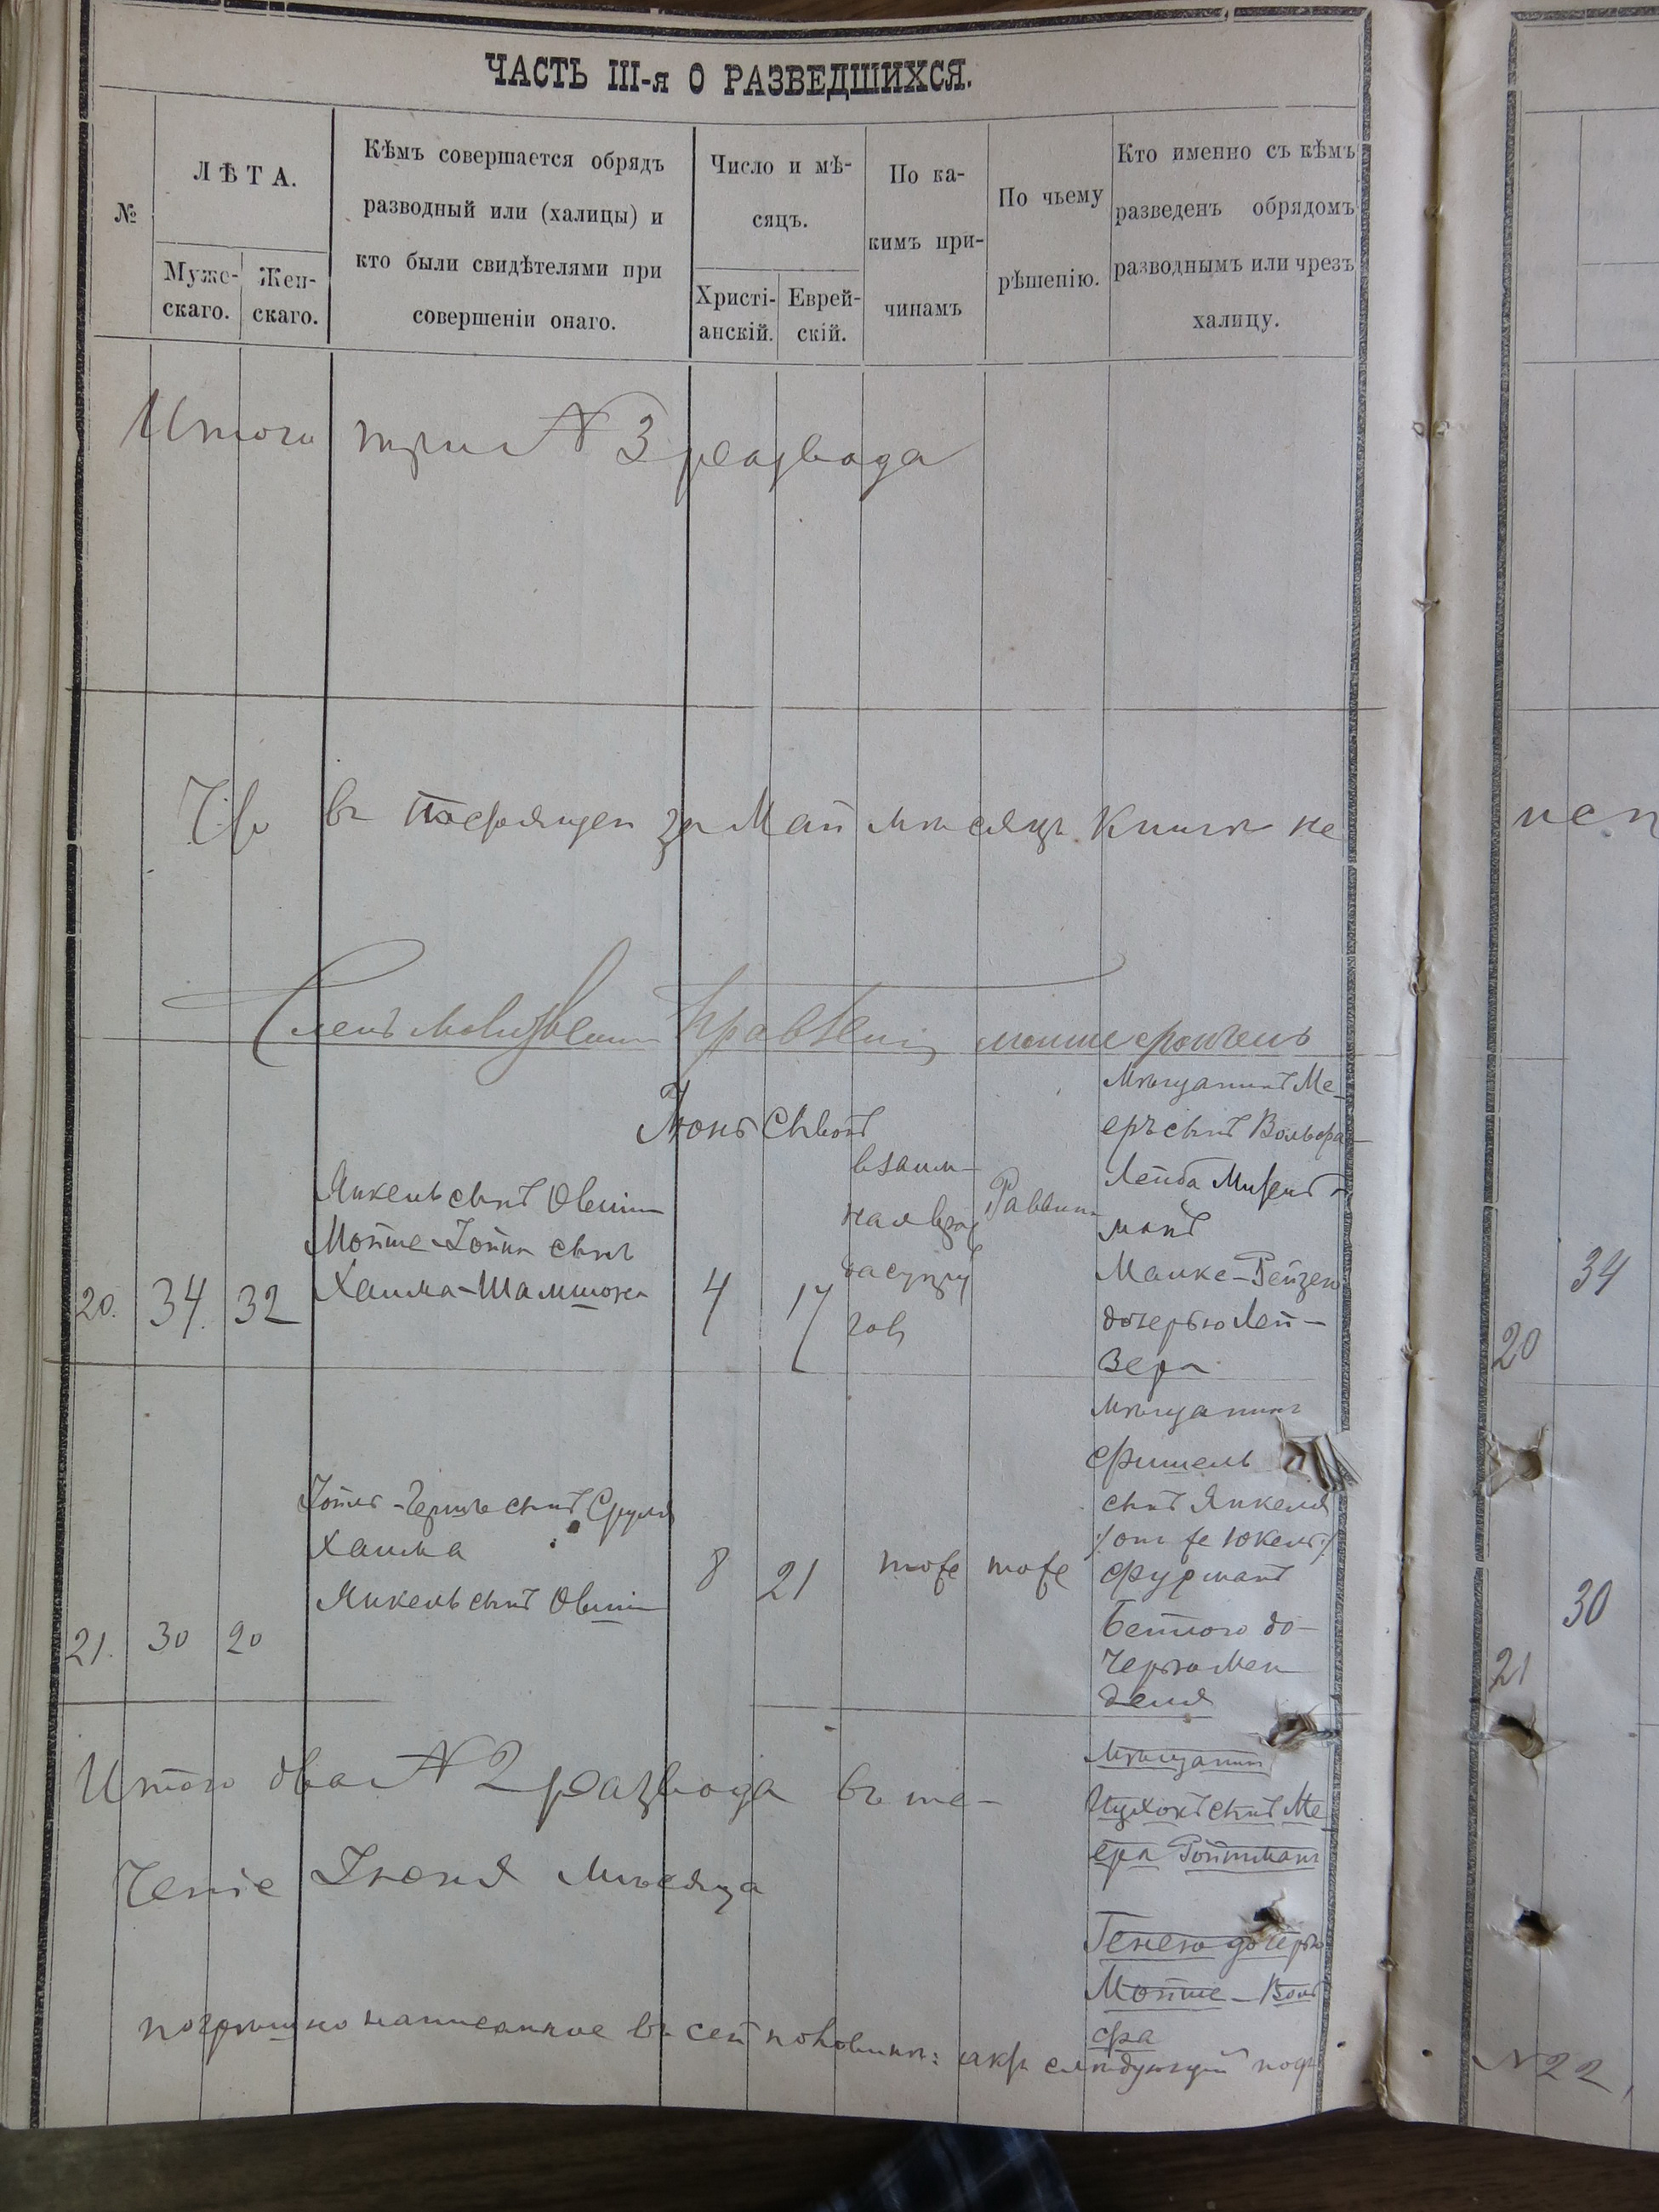 ЧАСТЬ III-я О РАЗВЕДШИХСЯ.
№
ЛѢТА.
Муже-
скаго.
Жен-
скаго.
Кѣмъ совершается обрядъ
разводный или (халицы) и
кто были свидѣтелями при
совершеніи онаго.
Число и мѣ-
сяцъ.
Христі-
анскій.
Еврей-
скій.
По ка-
кимъ при-
чинамъ
По чьему
рѣшенію.
Кто именно съ кѣмъ
разведенъ обрядомъ
разводнымъ или чрезъ
халицу.
Итого три N 3 развода
Что въ за Май мѣсяцъ книгѣ не
Членъ
Іюнь Сивонъ
20.
34.
32
Янкель сынъ Овшии
Мойше-Іойна сынъ
Хаима-Шамшона
4
17
взаим-
ная враж
да супру
говъ
Раввина
Мѣщанинъ Ме-
еръ сынъ Вольфа-
Лейба
манъ
Малке-Рейзею
дочерью Лей-
зера
21.
30
20
сынъ Сруля
Хаима
Янкель сынъ Овшии
8
21
тоже
тоже
мѣщанинъ
Фишель
сынъ Янкеля
/: онъ же Юкель :/
Фурманъ
Бейлою до-
черью Мен
деля
Итого два N 2 развода въ те-
ченіе Іюня мѣсяца
мѣщанинъ
Ицхокъ сынъ Ме
ера Ройтманъ
Генею дочерью
Мойше-Воль
фа
погрѣшно написанное въ сей половинѣ: слѣдующій подъ
34
20
30
21
N 22,